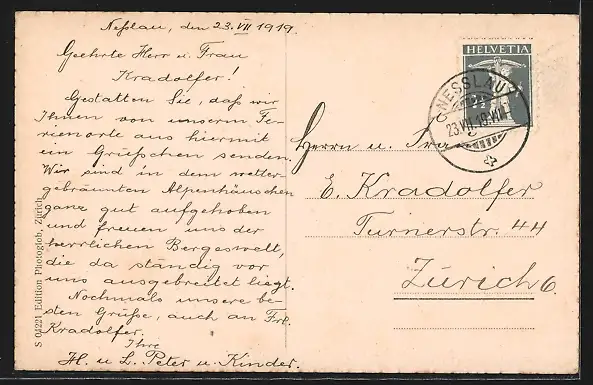 Neßlau, den 23. VII 1919.
Geehrte Herr u. Frau
Kradolfer!
Gestatten Sie, daß wir
Ihnen von unserm Fe-
rienorte aus hiermit
ein Grüßchen senden.
Wir sind in dem wetter-
gebräunten Alpenhäuschen
ganz gut aufgehoben
und freuen uns der
herrlichen Bergeswelt,
die da ständig vor
uns ausgebreitet liegt.
Nochmals unsere be-
sten Grüße, auch an Frl.
Kradolfer.
Ihre
H. u. L. Peter u. Kinder.
S 04221 Edition Photoglob, Zürich
HELVETIA
NESSLAU
23.VII.19.
Herrn u. Frau
E. Kradolfer
Turnerstr. 44
Zürich 6.